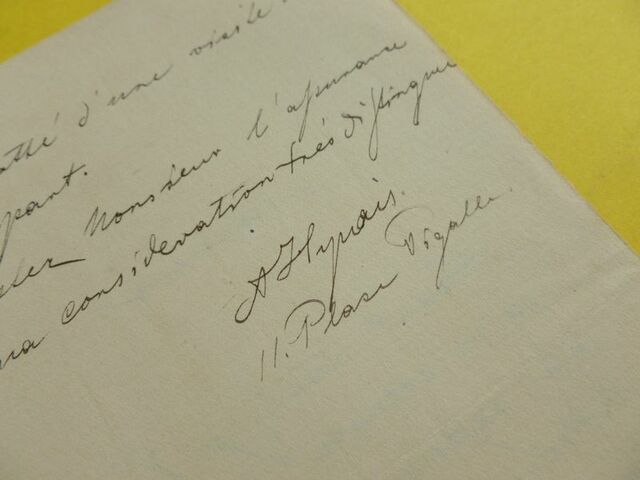 atté d'une visite.
pant.
Monsieur l'assurance
ma considération très distinguée
11. Place Pigalle.